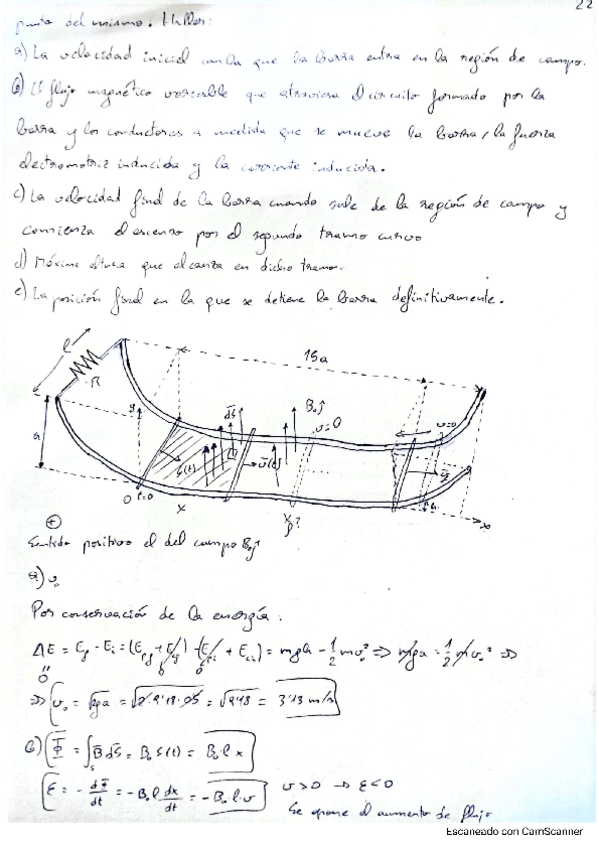 22
punto del mismo. Hallar:
a) La velocidad inicial con la que la barra entra en la región de campo.
b) El flujo magnético variable que atraviesa el circuito formado por la
barra y los conductores a medida que se mueve la barra, la fuerza
electromotriz inducida y la corriente inducida.
c) La velocidad final de la barra cuando sale de la región de campo y
comienza el ascenso por el segundo tramo curvo
d) Máxima altura que alcanza en dicho tramo.
e) La posición final en la que se detiene la barra definitivamente.
15a
l
R
a
y
dS
B₀ĵ
v=0
v=0
S(t)
v(t)
O
t=0
x
x
+
Sentido positivo el del campo B₀ĵ
a) v₀
Por conservación de la energía:
ΔE = E_f - E_i = mgh - 1/2 mv₀² ⇒ mga = 1/2 mv₀² ⇒
0
⇒ v₀ = √2ga = √2·9'8·0'5 = √9'8 = 3'13 m/s
b) Φ = ∫ B dS = B₀ S(t) = B₀ l x
ε = - dΦ/dt = - B₀ l dx/dt = - B₀ l · v v > 0 → ε < 0
Se opone al aumento de flujo
Escaneado con CamScanner